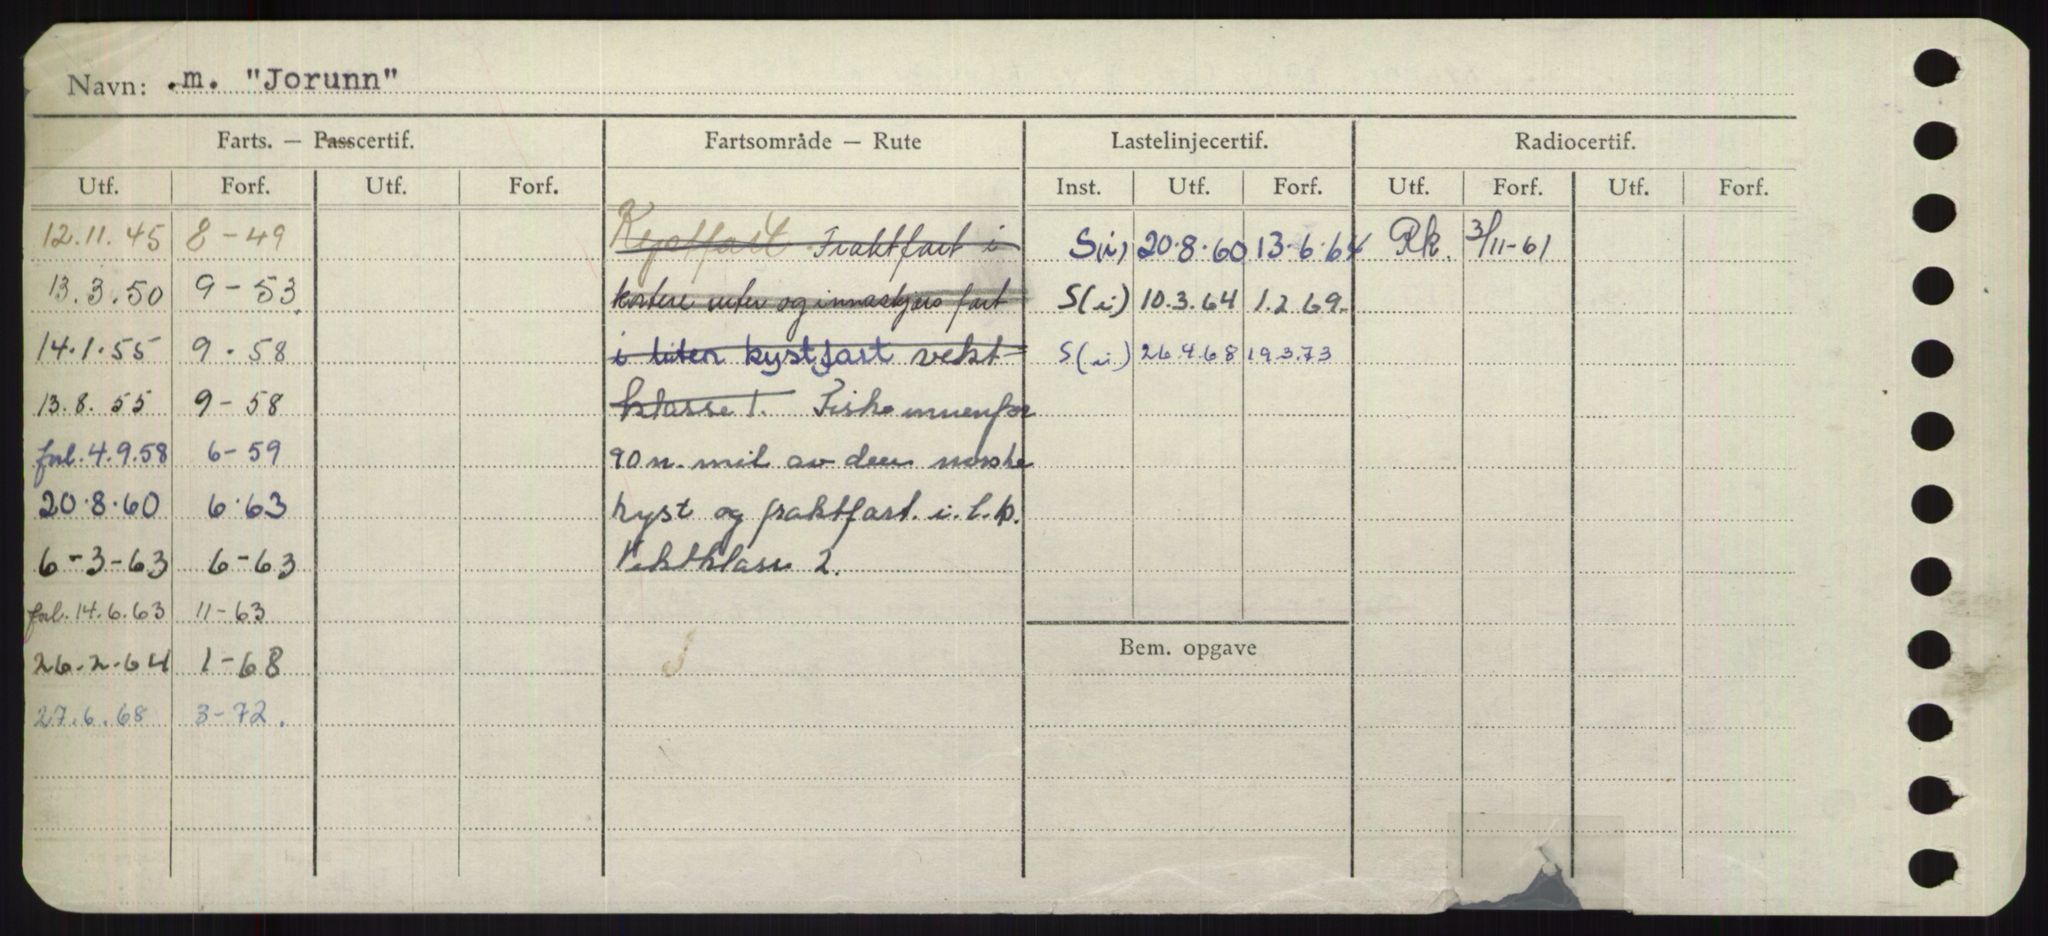 Navn: .m. "Jorunn"
Farts. — Passcertif. Fartsområde — Rute Lastelinjecertif. Radiocertif.
Utf. Forf. Utf. Forf. Inst. Utf. Forf. Utf. Forf. Utf. Forf.
12.11.45 8-49 Kystfart Fraktfart i S(i) 20.8.60 13.6.64 Rk. 3/11-61
13.3.50 9-53 kortere ruter og innaskjærs fart S(i) 10.3.64 1.2.69.
14.1.55 9.58 i liten kystfart vekt- S(i) 26.4.68 19.3.73
13.8.55 9-58 klasse 1. Fiske innenfor
forl. 4.9.58 6-59 90 n. mil av den norske
20.8.60 6.63 kyst og fraktfart. i. l. k.
6-3-63 6-63 Vektklasse 2.
forl. 14.6.63 11-63
26.2.64 1-68 Bem. opgave
27.6.68 3-72.